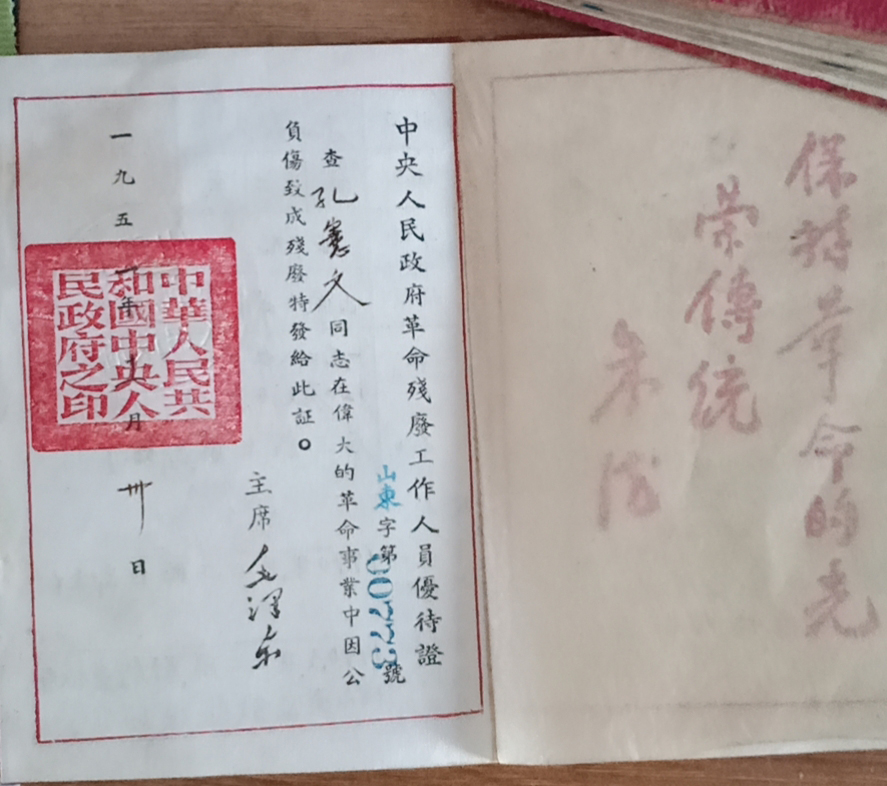 保持革命的光
荣傳統
朱德
中央人民政府革命殘廢工作人員優待證
山東字第00773號
查孔憲文同志在偉大的革命事業中因公
負傷致成殘廢特發給此証。
主席毛澤东
一九五一年月卅日
中華人民共
和國中央人
民政府之印